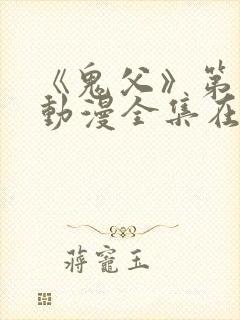 《鬼父》第
動漫全集在
蔣寵玉